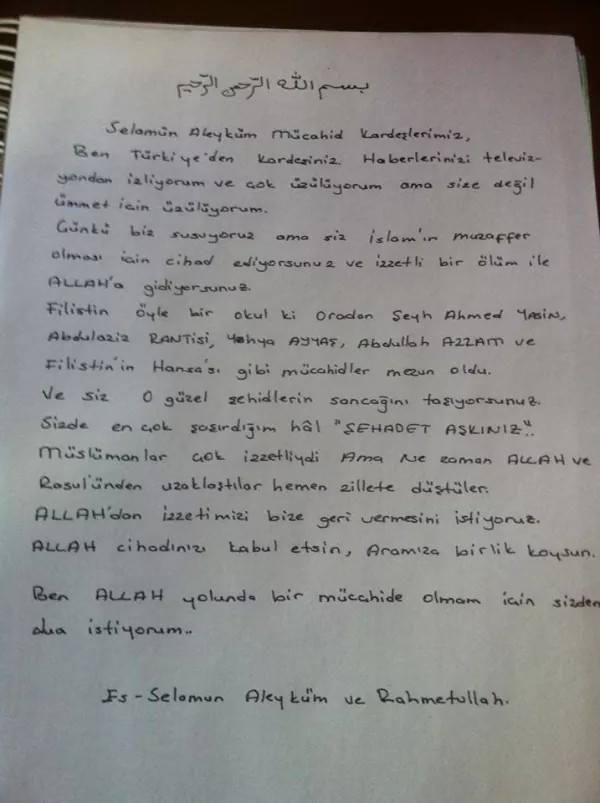 بسم الله الرّحمن الرّحيم
Selamün Aleyküm Mücahid Kardeşlerimiz,
Ben Türkiye'den kardeşiniz. Haberlerinizi televiz-
yondan izliyorum ve çok üzülüyorum ama size değil
ümmet için üzülüyorum.
Çünkü biz susuyoruz ama siz islam'ın muzaffer
olması için cihad ediyorsunuz ve izzetli bir ölüm ile
ALLAH'a gidiyorsunuz.
Filistin öyle bir okul ki Oradan Şeyh Ahmed YASİN,
Abdulaziz RANTİSİ, Yahya AYYAŞ, Abdullah AZZAM ve
Filistin'in Hansa'sı gibi mücahidler mezun oldu.
Ve siz O güzel şehidlerin sancağını taşıyorsunuz.
Sizde en çok şaşırdığım hâl "ŞEHADET AŞKINIZ"..
Müslümanlar çok izzetliydi Ama Ne zaman ALLAH ve
Rasul'ünden uzaklaştılar hemen zillete düştüler.
ALLAH'dan izzetimizi bize geri vermesini istiyoruz.
ALLAH cihadınızı kabul etsin, Aramıza birlik koysun.
Ben ALLAH yolunda bir mücahide olmam için sizden
dua istiyorum..
Es-Selamun Aleyküm ve Rahmetullah.